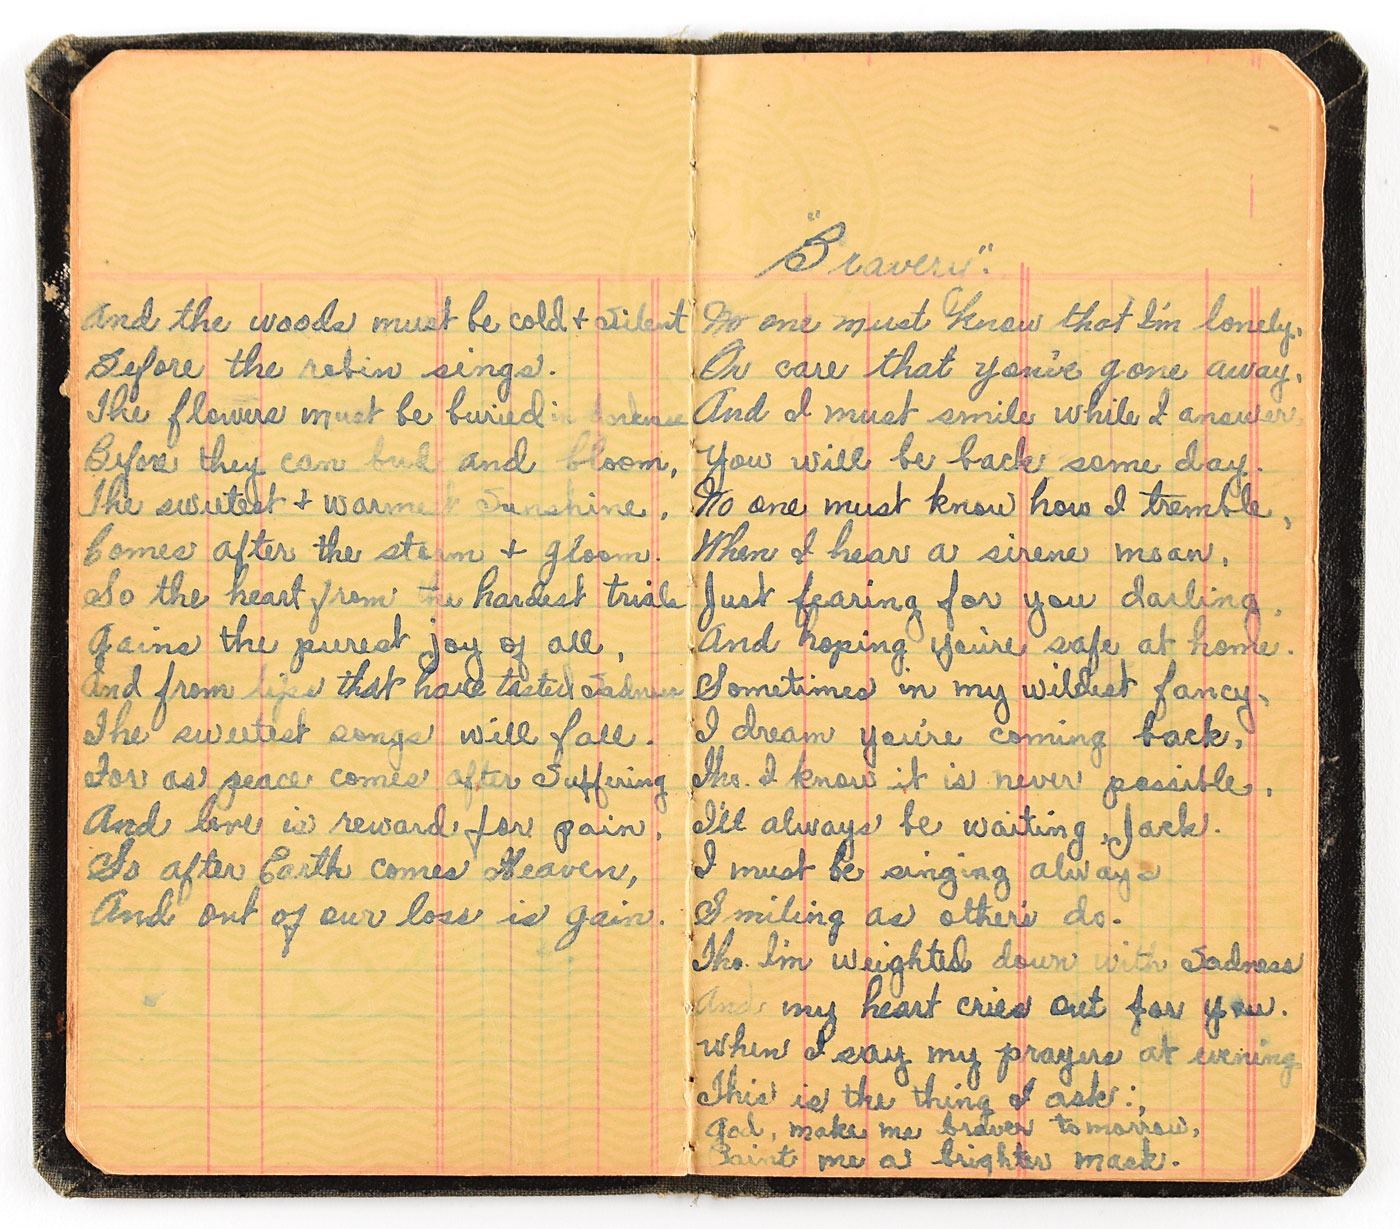 And the woods must be cold + Silent
Before the robin sings.
The flowers must be buried in darkness
Before they can bud and bloom,
The sweetest + warmest Sunshine,
Comes after the storm + gloom.
So the heart from the hardest trials
Gains the purest joy of all,
And from lips that have tasted Sadness
The sweetest songs will fall.
For as peace comes after Suffering
And love is reward for pain,
So after Earth comes Heaven,
And out of our loss is gain.
"Bravery".
No one must know that I'm lonely,
Or care that you're gone away,
And I must smile while I answer
You will be back some day.
No one must know how I tremble,
When I hear a sirene moan,
Just fearing for you darling,
And hoping you're safe at home.
Sometimes in my wildest fancy,
I dream you're coming back,
Tho. I know it is never possible,
I'll always be waiting, Jack.
I must be singing always
Smiling as other's do.
Tho. I'm weighted down with Sadness
And my heart cries out for you.
When I say my prayers at evening
This is the thing I ask:,
God, make me braver tomorrow,
Paint me a brighter mask.